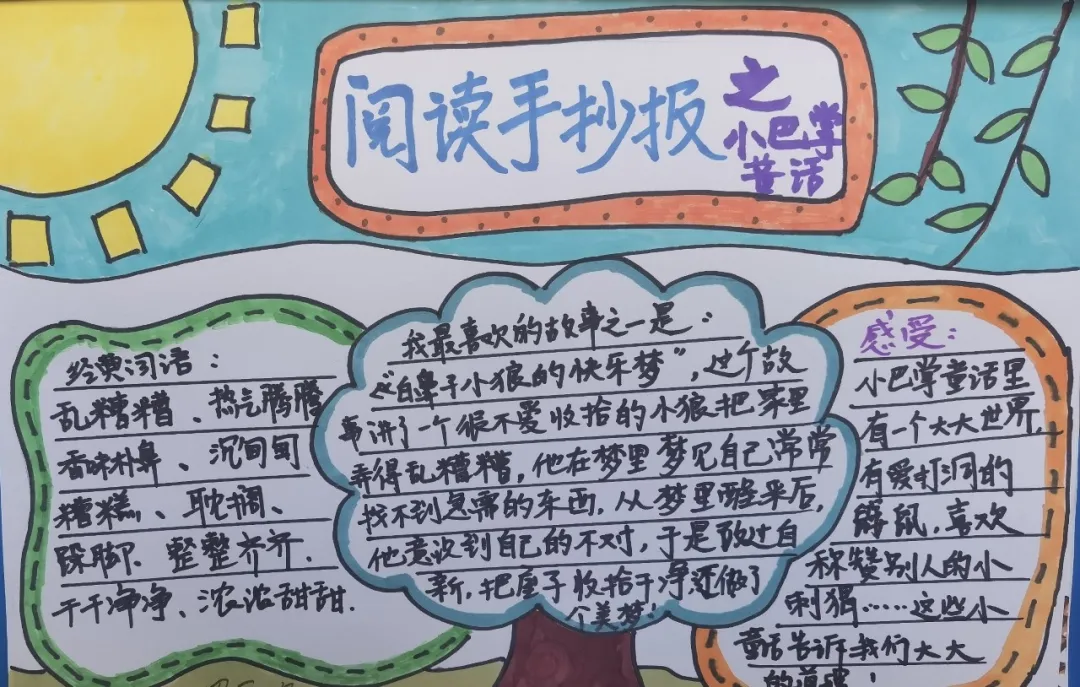 阅读手抄报
之
小巴掌
童话
经典词语：
乱糟糟、热气腾腾
香味朴鼻、沉甸甸
糟糕、耽搁、
跺脚、整整齐齐.
干干净净、浓浓甜甜.
我最喜欢的故事之一是：
“白鼻子小狼的快乐梦”，这个故
事讲了一个很不爱收拾的小狼把家里
弄得乱糟糟，他在梦里梦见自己常常
找不到急需的东西，从梦里醒来后，
他意识到自己的不对，于是改过自
新，把屋子收拾干净还做了
个美梦！
感受：
小巴掌童话里
有一个大大世界，
有爱打洞的
鼹鼠，喜欢
称赞别人的小
刺猬……这些小
童话告诉我们大大
的道理！